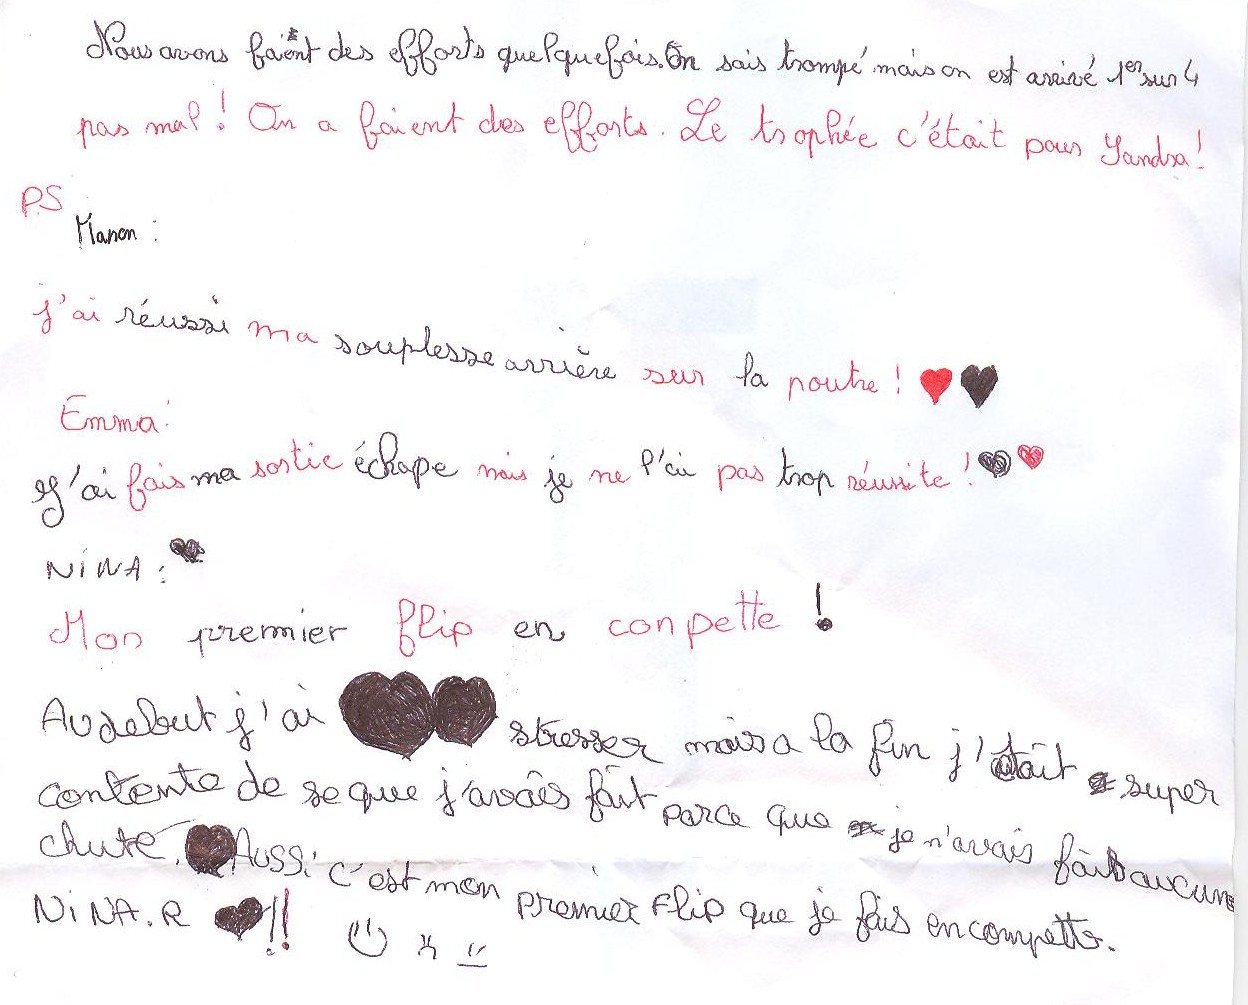 Nous avons faient des efforts quelquefois. On sais trompé mais on est arrivé 1er sur 4
pas mal ! On a faient des efforts. Le trophée c'était pour Yandra !
P.S
Manon :
j'ai réussi ma souplesse arrière sur la poutre !
Emma :
J'ai fais ma sortie échape mais je ne l'ai pas trop réussite !
NiNA :
Mon premier flip en conpette !
Au debut j'ai stresser mais a la fin j'était super
contente de se que j'avais fait parce que je n'avais fait aucune
chute. Aussi c'est mon premier flip que je fais en compette.
NiNA.R !!